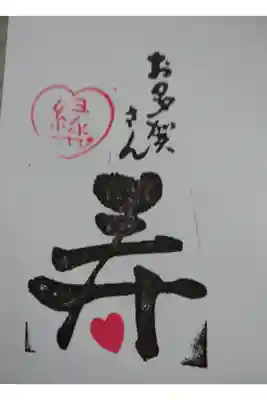 お多賀
さん
縁
寿